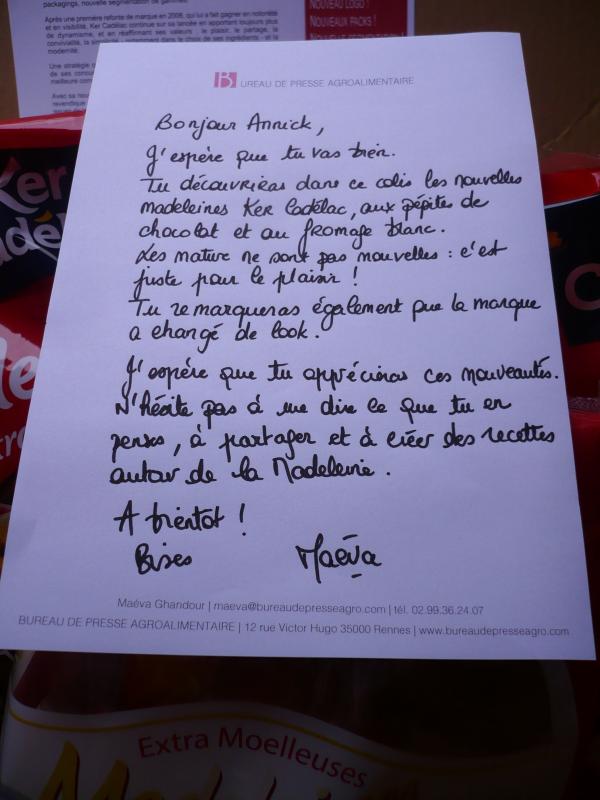 packagings, nouvelle segmentation de gammes.
Après une première refonte de marque en 2008, qui lui a fait gagner en notoriété
et en visibilité, Ker Cadélac continue sur sa lancée en apportant toujours plus
de dynamisme, et en réaffirmant ses valeurs : le plaisir, le partage, la
convivialité, la simplicité - notamment dans le choix de ses ingrédients - et la
modernité.
Une stratégie
de ses
meilleure
Avec sa
revendique
NOUVEAU LOGO !
NOUVEAUX PACKS !
NOUVELLE SEGMENTATION
Ker
B UREAU DE PRESSE AGROALIMENTAIRE
Bonjour Annick,
J'espère que tu vas bien.
Tu découvriras dans ce colis les nouvelles
madeleines Ker Cadélac, aux pépites de
chocolat et au fromage blanc.
Les nature ne sont pas nouvelles : c'est
juste pour le plaisir !
Tu remarqueras également que la marque
a changé de look.
J'espère que tu apprécieras ces nouveautés.
N'hésite pas à me dire ce que tu en
penses, à partager et à créer des recettes
autour de la Madeleine.
A bientôt !
Bises Maëva
Maëva Ghandour | maeva@bureaudepresseagro.com | tél. 02.99.36.24.07
BUREAU DE PRESSE AGROALIMENTAIRE | 12 rue Victor Hugo 35000 Rennes | www.bureaudepresseagro.com
Extra Moelleuses